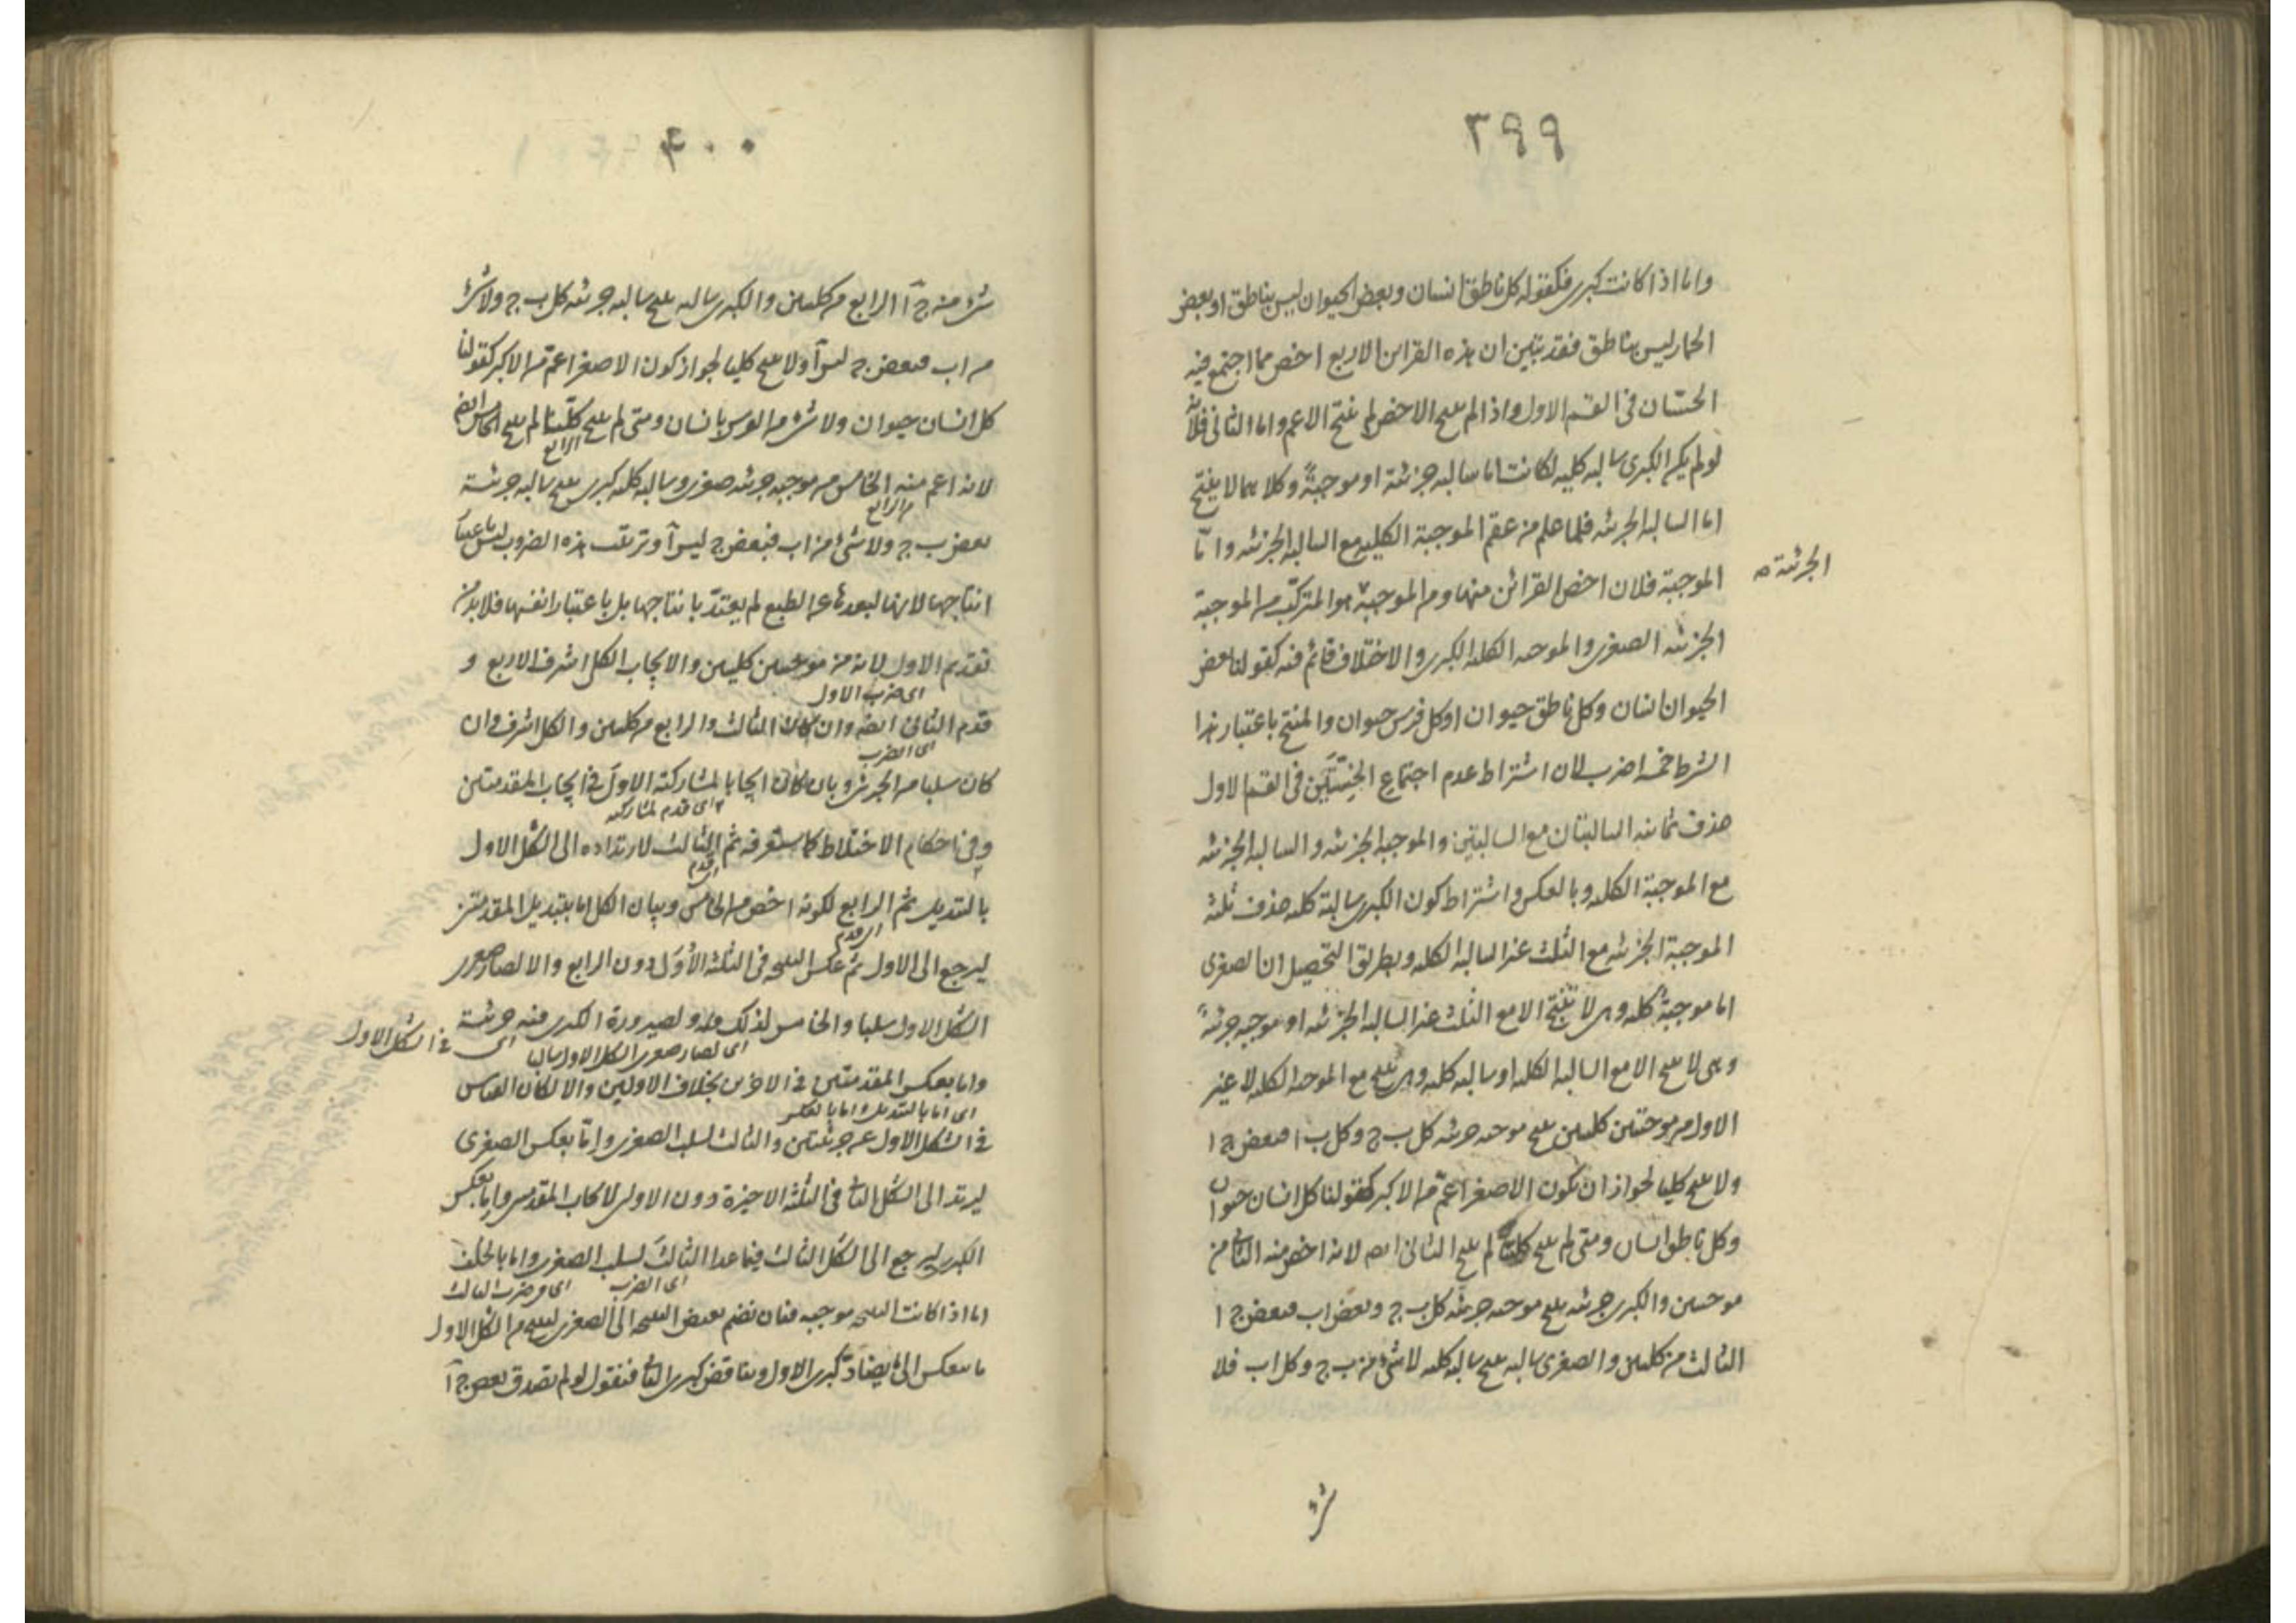 ٣٩٩
واما اذا كانت كبرى فكقوله كل ناطق انسان وبعض الحيوان ليس بناطق او بعض
الحمار ليس بناطق فقد تبين ان هذه القراين الاربع اخص مما اجتمع فيه
الخستان فى القسم الاول واذا لم ينتج الاخص لم ينتج الاعم واما الثانى فلانه
لو لم يكن الكبرى سالبه كليه لكانت اما سالبه جزئية او موجبةً وكلاهما لا ينتج
اما السالبه الجزئيه فلما علم من عقم الموجبة الكليه مع السالبه الجزئيه وامّا
الموجبة فلان اخص القرائن منها ومن الموجبة هو المتركّب من الموجبة
الجزئية
الجزئيه الصغرى والموجبه الكليه الكبرى والاختلاف قائم فيه كقولنا بعض
الحيوان انسان وكل ناطق حيوان او كل فرس حيوان والمنتج باعتبار هذا
الشرط خمسه اضرب لان اشتراط عدم اجتماع الخستين فى القسم الاول
حذف ثمانيه السالبتان مع السالبتين والموجبه الجزئيه والسالبه الجزئيه
مع الموجبة الكليه وبالعكس واشتراط كون الكبرى سالبة كليه حذف ثلثه
الموجبة الجزئيه مع الثلث غير السالبة الكليه وبطريق التحصيل ان الصغرى
اما موجبةٌ كليه وهى لا تنتج الا مع الثلث غير السالبه الجزئيه او موجبه جزئيةً
وهى لا ينتج الا مع السالبه الكليه او سالبه كليه وهى ينتج مع الموجبه الكليه لا غير
الاول من موجبتين كليتين ينتج موجبه جزئيه كل ب ج وكل ب ا فبعض ج ا
ولا ينتج كليا لجواز ان يكون الاصغر اعمّ من الاكبر كقولنا كل انسان حيوان
وكل ناطق انسان ومتى لم ينتج كليا لم ينتج الثانى ايضه لانه اخص منه الثانى من
موجبتين والكبرى جزئيه ينتج موجبه جزيئه كل ب ج وبعض اب فبعض ج ا
الثالث من كليتين والصغرى سالبه ينتج سالبه كليه لا شئ من ب ج وكل اب فلا
شئ
٤٠٠
شئ منه ج آ الرابع من كليتين والكبرى سالبه ينتج سالبه جزئيه كل ب ج ولا شئ
من اب فبعض ج ليس آ ولا ينتج كليا لجواز كون الاصغر اعمّ من الاكبر كقولنا
كل انسان حيوان ولا شئ من الفرس بانسان ومتى لم ينتج كليّا لم ينتج الخامس ايضه
الرابع
لانه اعم منه الخامس من موجبه جزئيه صغرى وسالبه كليه كبرى ينتج سالبه جزئية
من الرابع
بعض ب ج ولا شئ من اب فبعض ج ليس آ وترتيب هذه الضروب ليس باعتبار
انتاجها لانها لبعدها عن الطبع لم يعتدّ بانتاجها بل باعتبار انفسها فلا بد من
تقديم الاول لانه من موجبتين كليتين والايجاب الكلى اشرف الاربع و
اى ضرب الاول
قدم الثانى ايضه وان كان الثالث والرابع من كليتين والكلى اشرف وان
اى الضرب
كان سلبا من الجزئى وان كان ايجابا لمشاركته الاول فى ايجاب المقدمتين
اى قدم لمشاركته
وفى احكام الاختلاط كما ستعرفه ثم الثالث لارتداده الى الشكل الاول
اى قدم
بالتبديل ثم الرابع لكونه اخص من الخامس وبيان الكل اما بتبديل المقدمتين
اى قدم
ليرجع الى الاول ثم عكس النتيجه فى الثلثة الأُوَل دون الرابع والا لصار صغرى
الشكل الاول سلبا والخامس لذلك ولصيرورة الكبرى فيه جزئية
اى فى الشكل الاول
اى لصار صغرى الشكل الاول سالبا
واما بعكس المقدمتين فى الاخرين بخلاف الاولين والا لكان القياس
اى اما بالتبديل واما بالعكس
فى الشكل الاول عن جزئيتين والثالث لسلب الصغرى وامّا بعكس الصغرى
ليرتد الى الشكل الثانى فى الثلثة الاخيرة دون الاولين لايجاب المقدمتين واما بعكس
الكبرى ليرجع الى الشكل الثالث فيما عدا الثالث لسلب الصغرى واما بالخلف
اى الضرب
اى فى ضرب الثالث
اما اذا كانت النتيجه موجبه فبان نضم نقيض النتيجه الى الصغرى لينتج من الشكل الاول
ما ينعكس الى ما يضادّ كبرى الاول ويناقض كبرى الثانى فنقول لو لم يصدق بعض ج آ